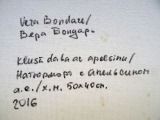 Vera Bondare/
Вера Бондар.
Klusā daba ar apelsīnu/
Натюрморт с апельсином
а.е./х.м. 50x40cm.
2016